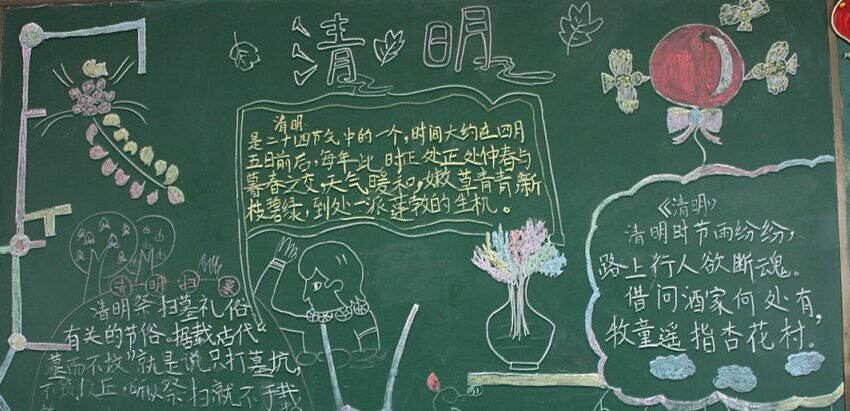 清明
清明
是二十四节气中的一个,时间大约在四月
五日前后,每年此时正处正处仲春与
暮春之交,天气暖和,嫩草青青,新
枝碧绿,到处一派蓬勃的生机。
清明扫墓
清明祭扫墓礼俗
有关的节俗。据载,古代“
墓而不坟”就是说只打墓坑,
丘,所以祭扫就不于载
《清明》
清明时节雨纷纷,
路上行人欲断魂。
借问酒家何处有,
牧童遥指杏花村。